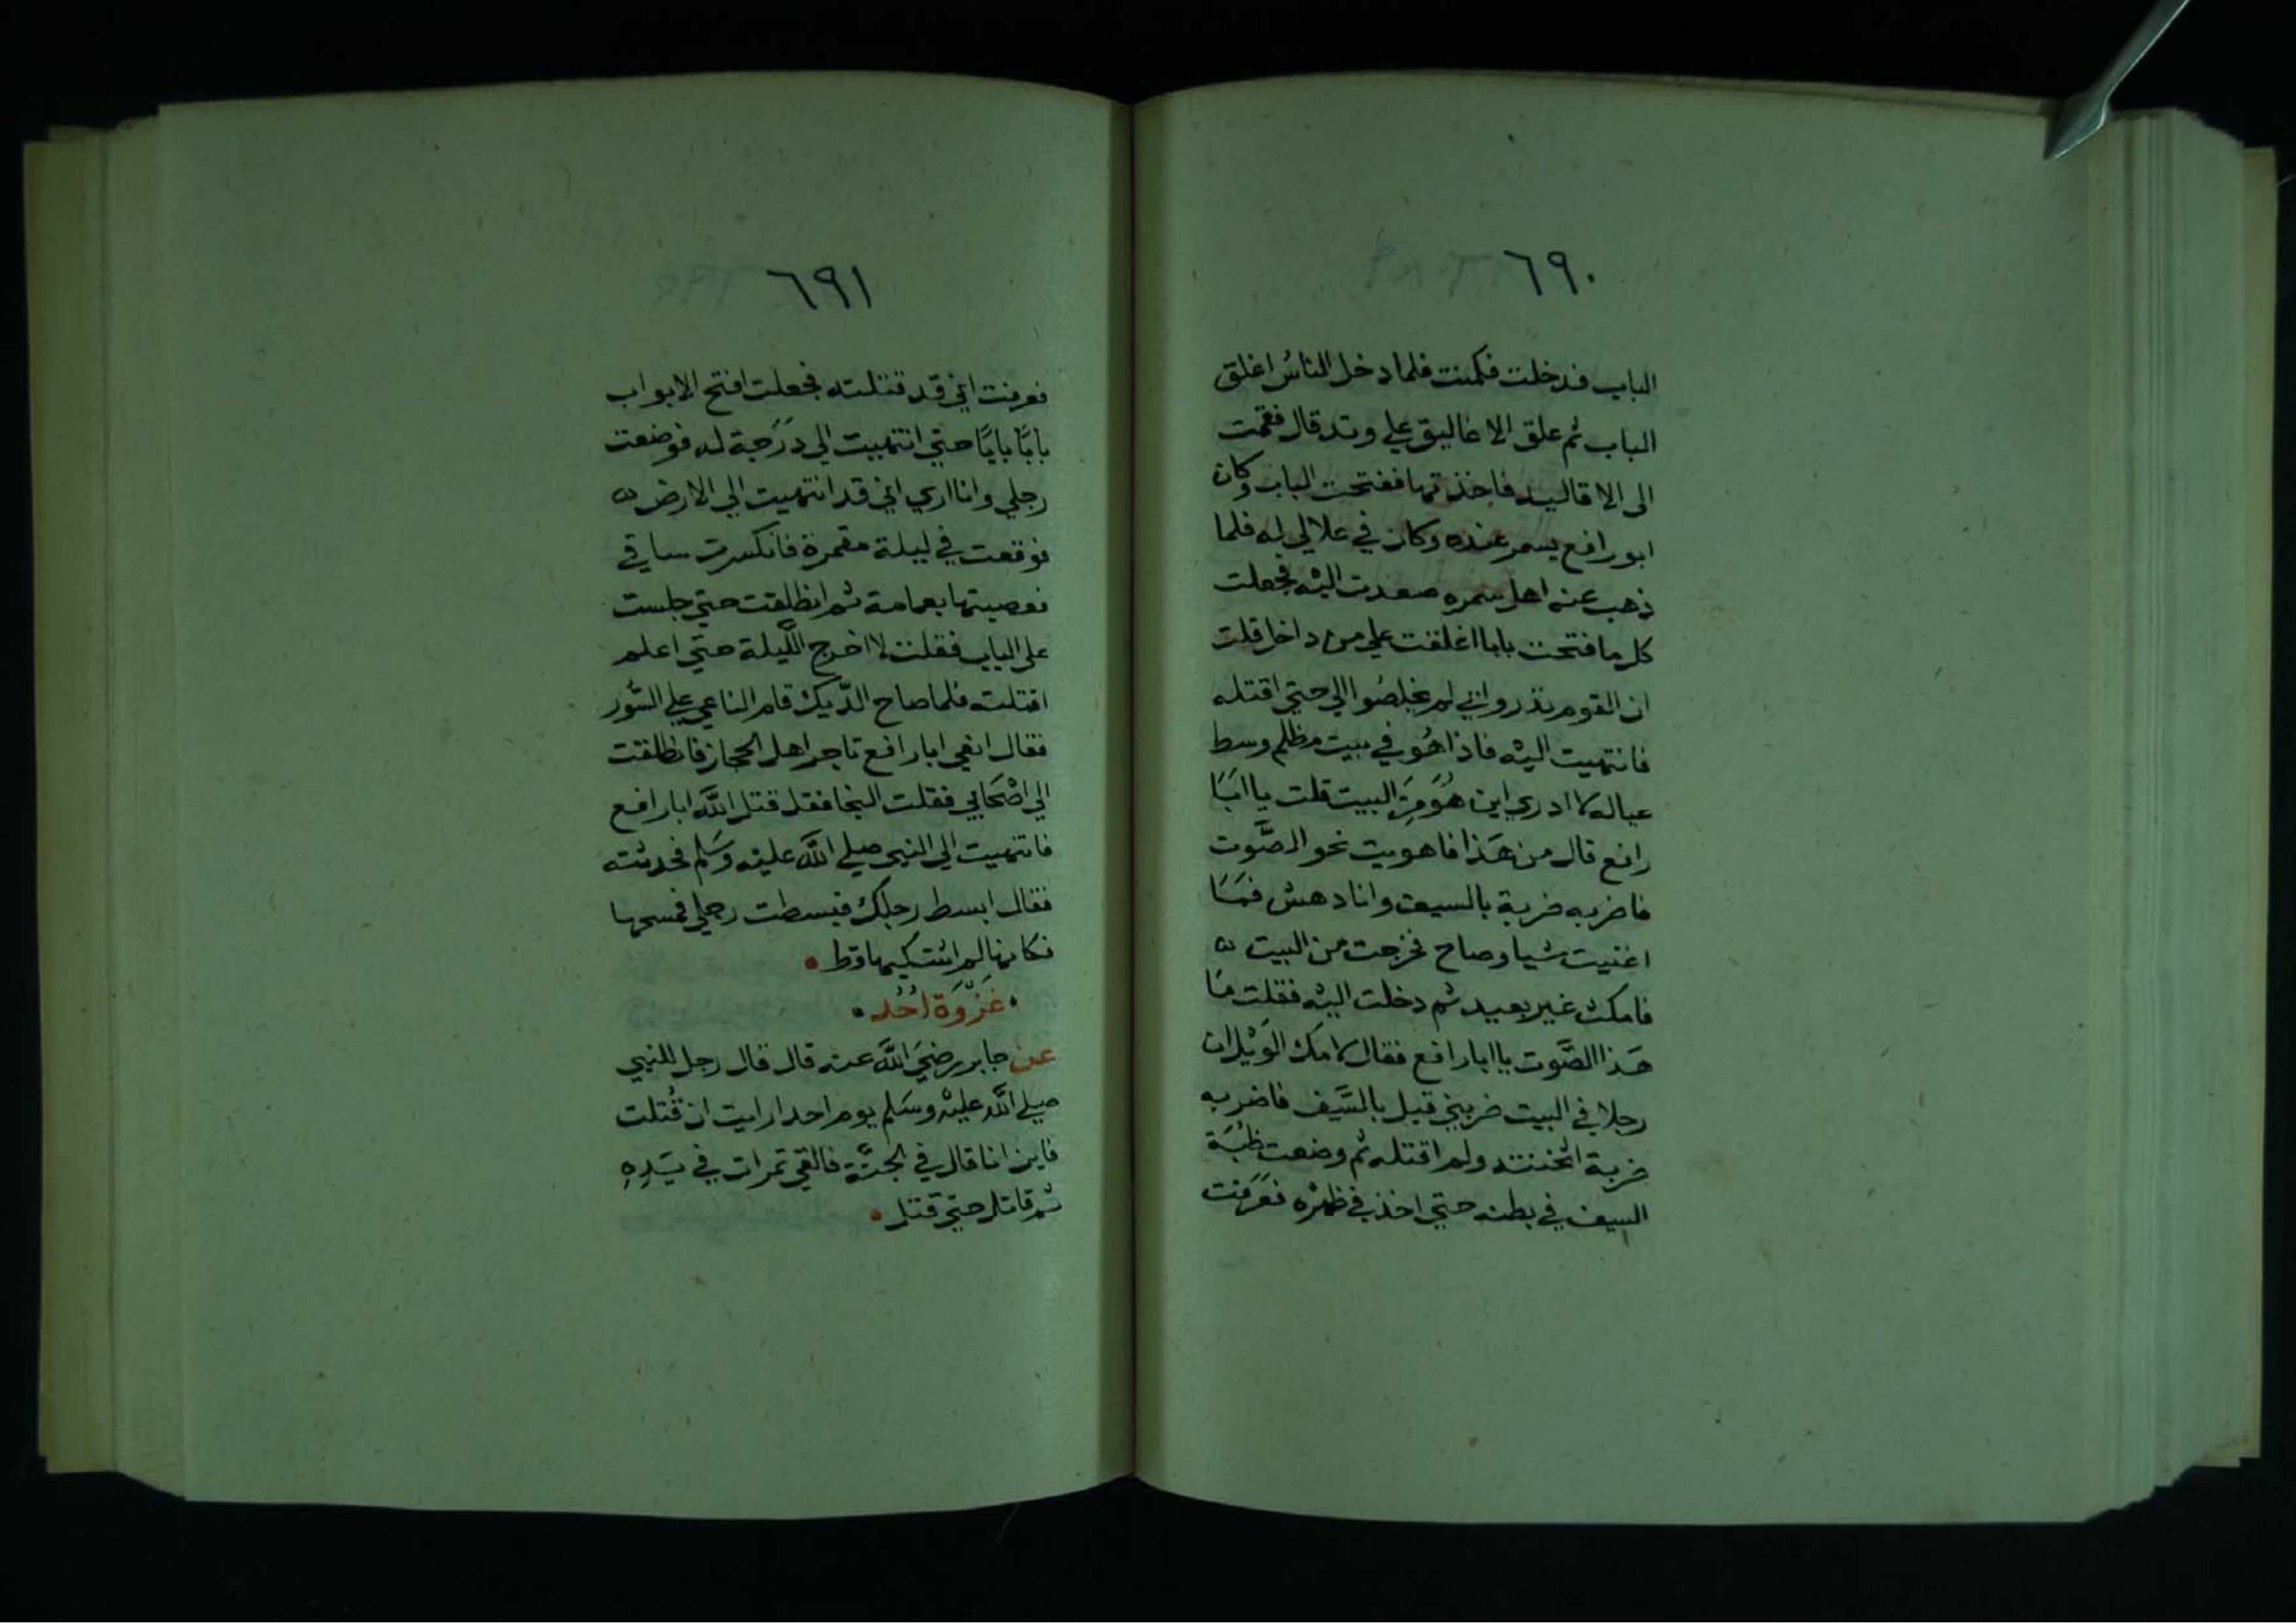 ٦٩٠
الباب فدخلت فكمنت فلما دخل الناسُ اغلق
الباب ثم علق الاغاليق علي وتد قال فقمت
الى الاقاليد فاخذتها ففتحت الباب وكان
ابو رافع يسمر عنده وكان في علالي له فلما
ذهب عنه اهل سمره صعدت اليْه فجعلت
كل ما فتحت بابا اغلقت علي من داخل قلت
ان القوم نذروا بي لم يخلصُوا الي حتي اقتله
فانتهيت اليْه فاذا هُو في بيت مظلم وسط
عياله لا ادري اين هُوَ مِنَ البيت قلت يا ابَا
رافع قال من هَذا فاهويت نحو الصَّوت
فاضربه ضربة بالسيف وانا دهش فمَا
اغنيت شيا وصاح فخرجت من البيت
فامكث غير بعيد ثم دخلت اليْه فقلت مَا
هَذا الصَّوت يا ابا رافع فقال لامك الوَيْل ان
رجلا في البيت ضربني قبل بالسَّيف فاضربه
ضربة اثخنته ولم اقتله ثم وضعت ظبَة
السيف في بطنه حتي اخذ في ظهْره فعَرَفت
٦٩١
فعرفت اني قد قتلته فجعلت افتح الابواب
بابًا بابًا حتي انتهيت الي دَرَجة له فوضعت
رجلي وانا اري اني قد انتهيت الي الارض
فوقعت في ليلة مقمرة فانكسرت ساقي
فعصبتها بعمامة ثم انطلقت حتي جلست
على الباب فقلت لا اخرج اللَّيلة حتي اعلم
اقتلته فلما صاح الدّيك قام الناعي علي السُّور
فقال انعي ابا رافع تاجر اهل الحجاز فانطلقت
الي اصْحَابي فقلت النجا فقد قتل اللَّه ابا رافع
فانتهيت الي النبي صلي اللَّه عليْه وسَلم فحدثته
فقال ابسط رجلك فبسطت رجلي فمسحها
فكانها لم اشتكيها قط
غَزْوَة اُحُد
عن جابر رضيَ اللَّه عنه قال قال رجل للنبي
صلي اللَّه عليْه وسَلم يوم احد ارايت ان قُتلت
فاين انا قال في الجنَّة فالقي تمرات في يَدِهِ
ثم قاتل حتي قتل